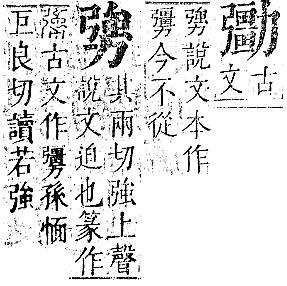 古
文
勥說文本作
今不從
勥
其兩切強上聲
說文迫也篆作
古文作孫愐
巨良切讀若強